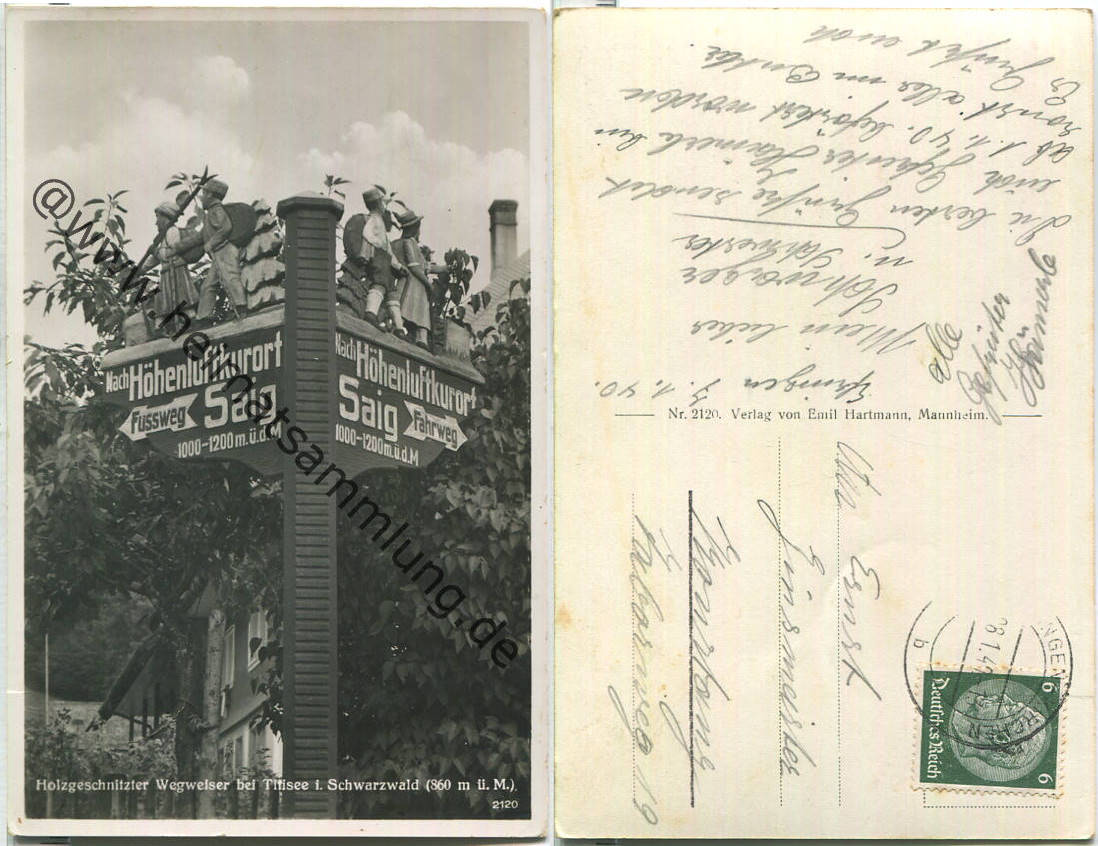 @www.heimatsammlung.de
Nach Höhenluftkurort
Saig
Fussweg
1000-1200 m.ü.d.M
Nach Höhenluftkurort
Saig
Fahrweg
1000-1200 m.ü.d.M
Holzgeschnitzter Wegweiser bei Titisee i. Schwarzwald (860 m ü. M.)
2120
3.1.40.
Mein lieber
Schwager
u. Schwester
die besten Grüße sendet
euch
ab 1.1.40. befördert worden
sonst alles im
Es grüßt euch
alle
Nr. 2120. Verlag von Emil Hartmann, Mannheim.
Ernst
Konstanz
19
INGEN
b
Deutsches Reich
6
6